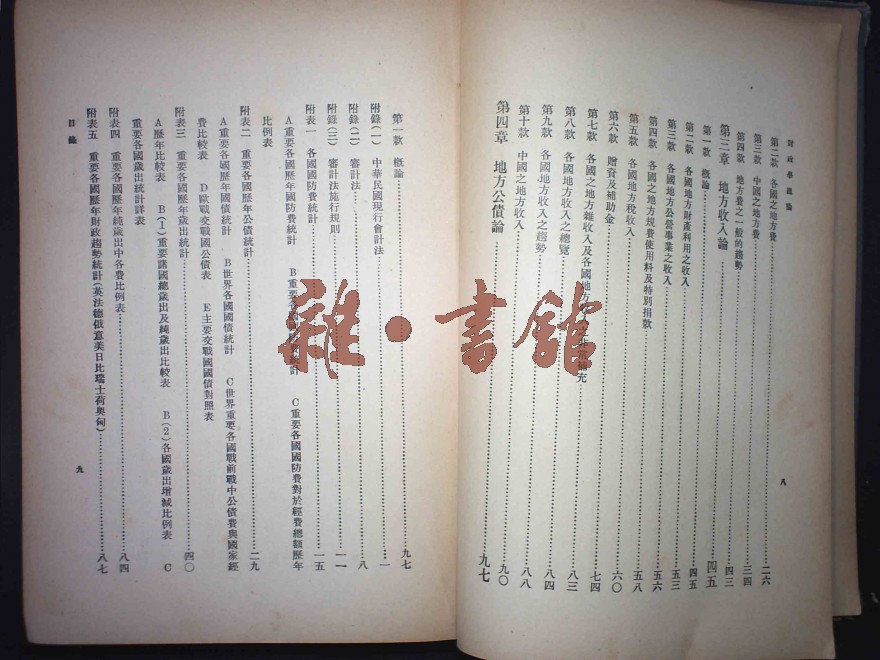 財政學總論
第二款 各國之地方費……二六
第三款 中國之地方費……三四
第四款 地方費之一般的趨勢……四三
第三章 地方收入論……四五
第一款 概論……四五
第二款 各國地方財產利用之收入……五三
第三款 各國地方公營事業之收入……五六
第四款 各國之地方規費使用料及特別捐款……五八
第五款 各國地方稅收入……六〇
第六款 贈資及補助金……七四
第七款 各國之地方雜收入及各國地方收入之非常補充
第八款 各國地方收入之總覽……八三
第九款 各國地方收入之趨勢……八四
第十款 中國之地方收入……九〇
第四章 地方公債論……九七
八
第一款 概論……九七
附錄(一) 中華民國現行會計法……一
附錄(二) 審計法……八
附錄(三) 審計法施行規則……一一
附表一 各國國防費統計……一五
A重要各國歷年國防費統計 B重要各國 統計 C重要各國國防費對於經費總額歷年
比例表
附表二 重要各國歷年公債統計……二九
A重要各國歷年國債統計 B世界各國國債統計 C世界重要各國戰前戰中公債費與國家經
費比較表 D歐戰交戰國公債表 E主要交戰國國債對照表
附表三 重要各國歷年歲出統計……四〇
A歷年比較表 B(1)重要諸國總歲出及純歲出比較表 B(2)各國歲出增減比例表 C
重要各國歲出統計詳表
附表四 重要各國歷年純歲出中各費比例表……八四
附表五 重要各國歷年財政趨勢統計(英法德俄意美日比瑞士荷奧匈)……八七
目錄
九
雜·書館